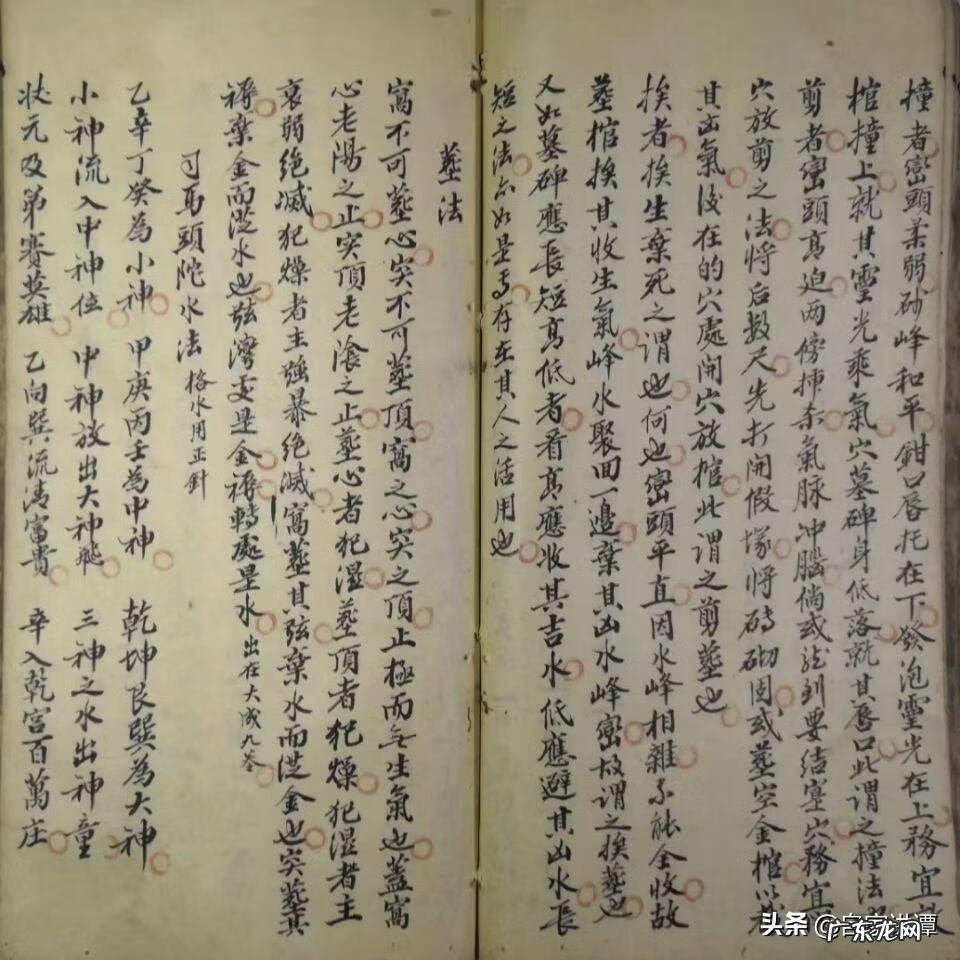 撞者巒頭柔弱砂峰和平鉗口唇托在下發泡靈光在上務宜放
棺撞上就其靈光乘氣穴墓碑身低落就其唇口此謂之撞法
剪者巒頭高迫两傍揷杀氣脉冲腦倘或到要结寔穴務宜
穴放剪之法將后数尺先打開假塚將磚砌固或塟空金棺以
其出氣後在的穴處開穴放棺此謂之剪塟也
挨者挨生棄死之谓也何也巒頭平直因水峰相雜不能全收故
塟棺挨其收生氣峰水聚囬一邉棄其凶水峰巒故谓之挨塟也
又如墓碑應長短高低者看高應收其吉水低應避其凶水長
短之法亦如是焉存在其人之活用也
塟法
窩不可塟心突不可塟頂窩之心突之頂止極而无生氣也蓋窩
心老陽之止突頂老陰之止塟心者犯濕塟頂者犯燥犯濕者主
衰弱绝滅犯燥者主強暴绝滅窩塟其弦棄水而
金也突塟其
棄金而
水也弦灣
是金
轉處是水 出在大成九卷
司馬頭陀水法 格水用正針
乙辛丁癸為小神 甲庚丙壬為中神 乾坤艮巽為大神
小神流入中神位 中神放出大神飛 三神之水出神童
状元及第賽英雄 乙向巽流清富貴 辛入乾宫百萬庄
头条 @客家洪潭
广东龙网